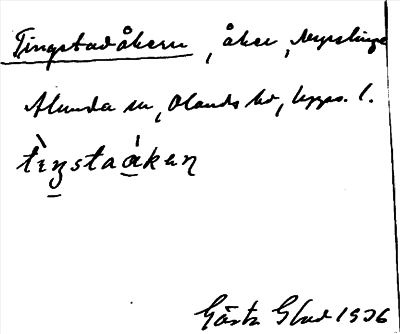 Tingstadåkern, åker, Myrslinge
Alunda sn, Olands hd, Upps. l.
tìŋstaåkaŋ
Gösta Blad 1936